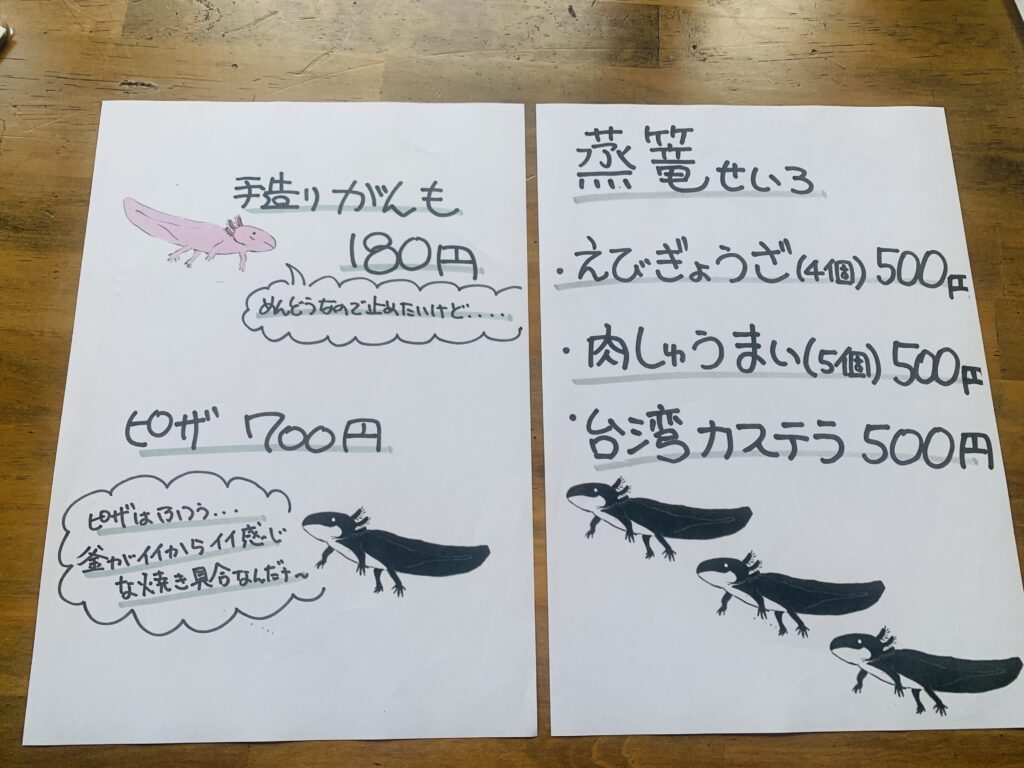 手造りがんも
180円
めんどうなので止めたいけど....
ピザ 700円
ピザはふつう...
釜がイイからイイ感じ
な焼き具合なんだナ〜
蒸篭せいろ
・えびぎょうざ(4個)500円
・肉しゅうまい(5個)500円
・台湾カステラ 500円